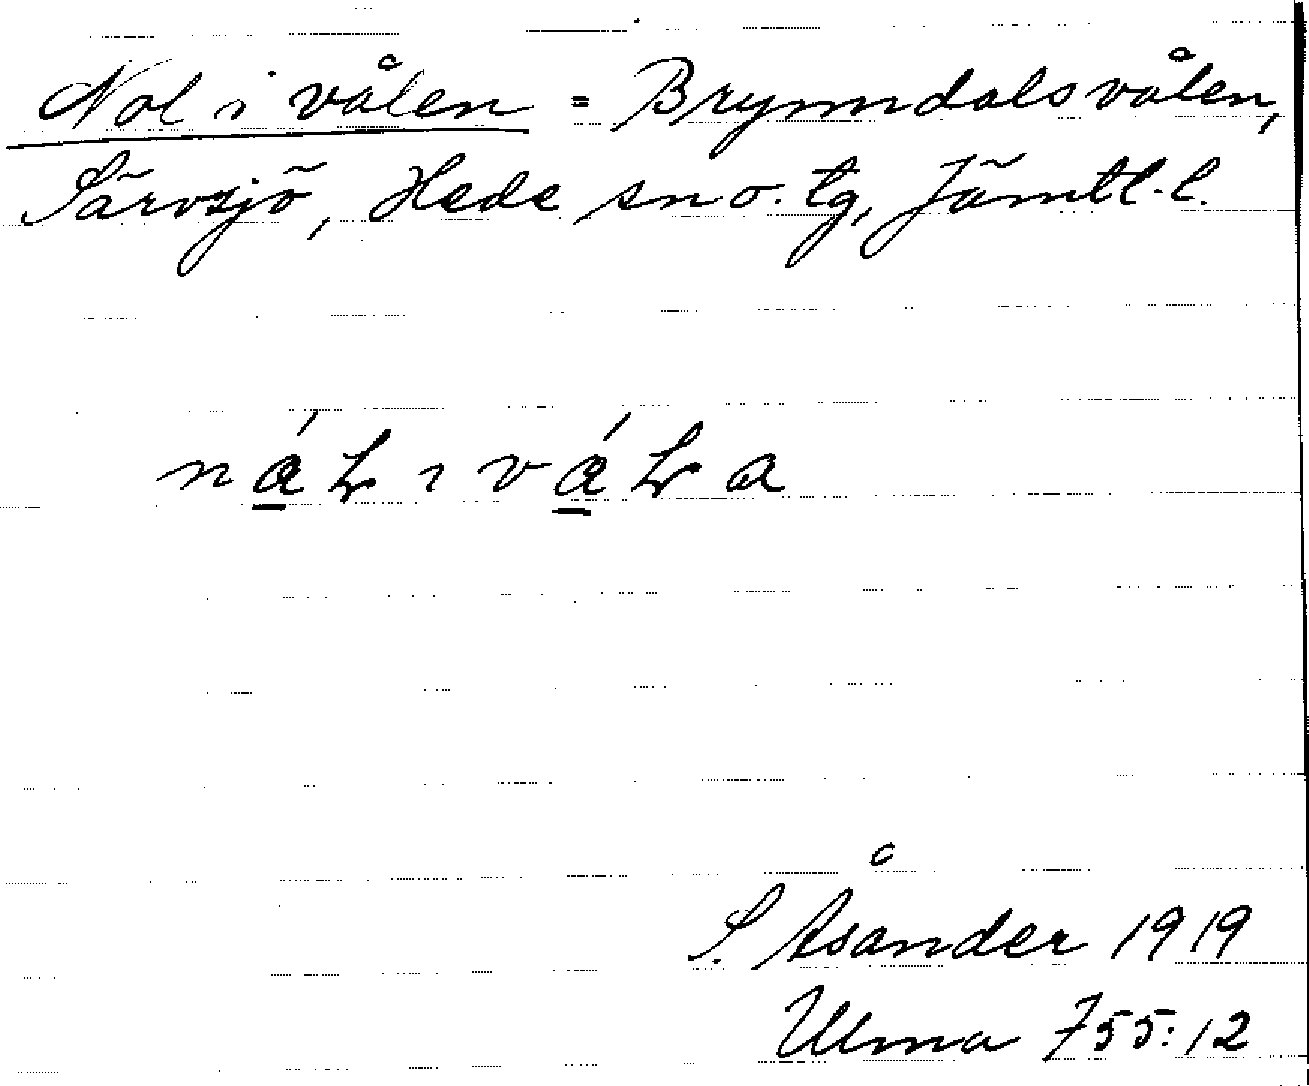 Nol i vålen = Brynndalsvålen,
Särvsjö, Hede sn o. tg, Jämtl. l.
S. Åsander 1919
Ulma 755:12